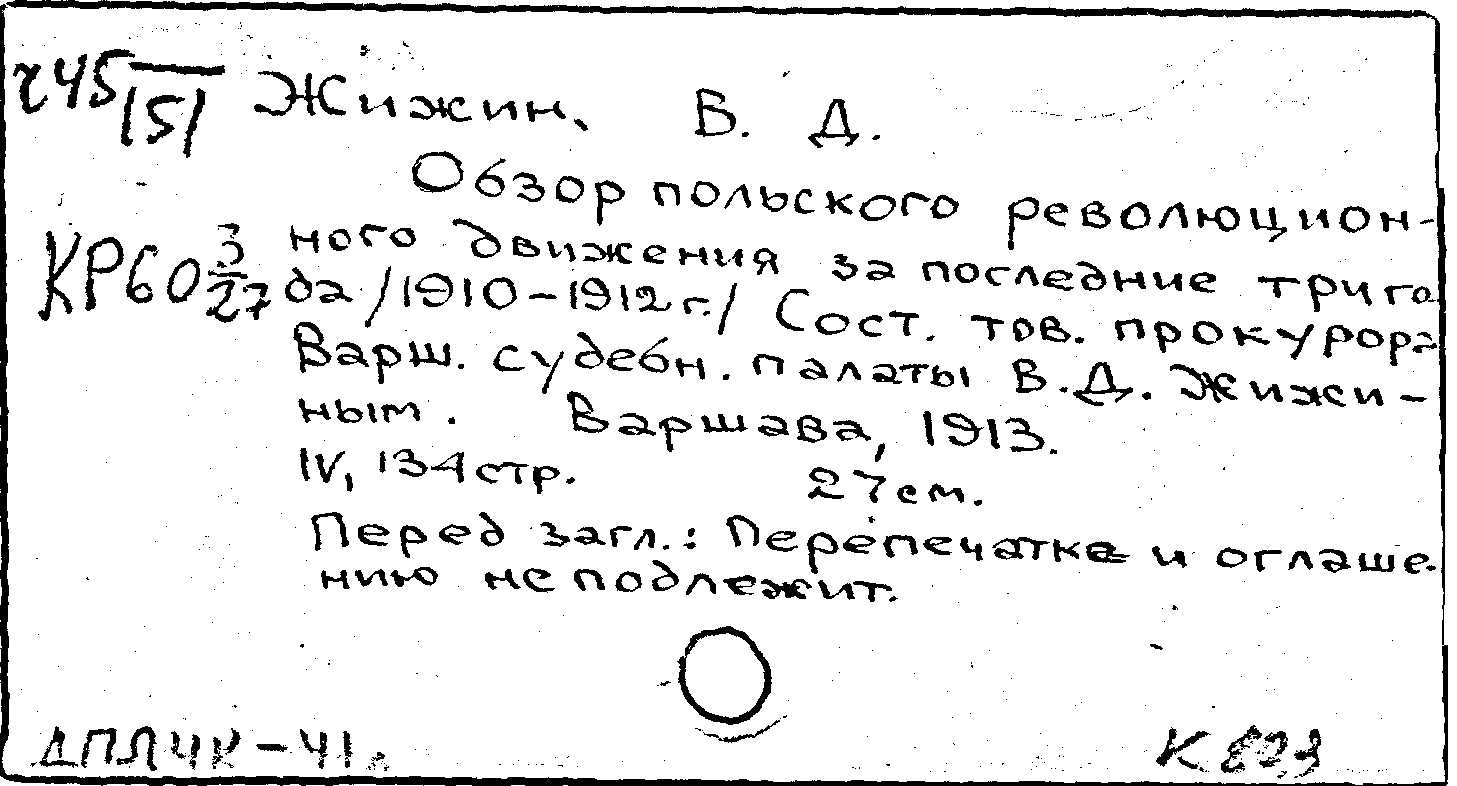 Жижин, В. Д.
Обзор польского революцион-
ного движения за последние три го
да /1910-1912 г./ Сост. тов. прокурора
КР60 3/27
Варш. судебн. палаты В. Д. Жижи-
ным. Варшава, 1913.
IV, 134 стр. 27 см.
Перед загл.: Перепечатке и оглаше.
нию не подлежит.
К 823